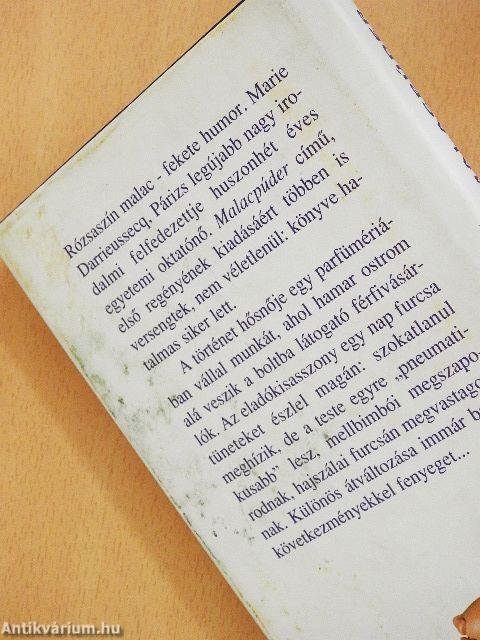 Rózsaszín malac - fekete humor. Marie
Darrieussecq, Párizs legújabb nagy iro-
dalmi felfedezettje huszonhét éves
egyetemi oktatónő. Malacpúder című,
első regényének kiadásáért többen is
versengtek, nem véletlenül: könyve ha-
talmas siker lett.
A történet hősnője egy parfümériá-
ban vállal munkát, ahol hamar ostrom
alá veszik a boltba látogató férfivásár-
lók. Az eladókisasszony egy nap furcsa
tüneteket észlel magán: szokatlanul
meghízik, de a teste egyre „pneumati-
kusabb” lesz, mellbimbói megszapo-
rodnak, hajszálai furcsán megvastago
nak. Különös átváltozása immár
következményekkel fenyeget...
Antikvárium.hu